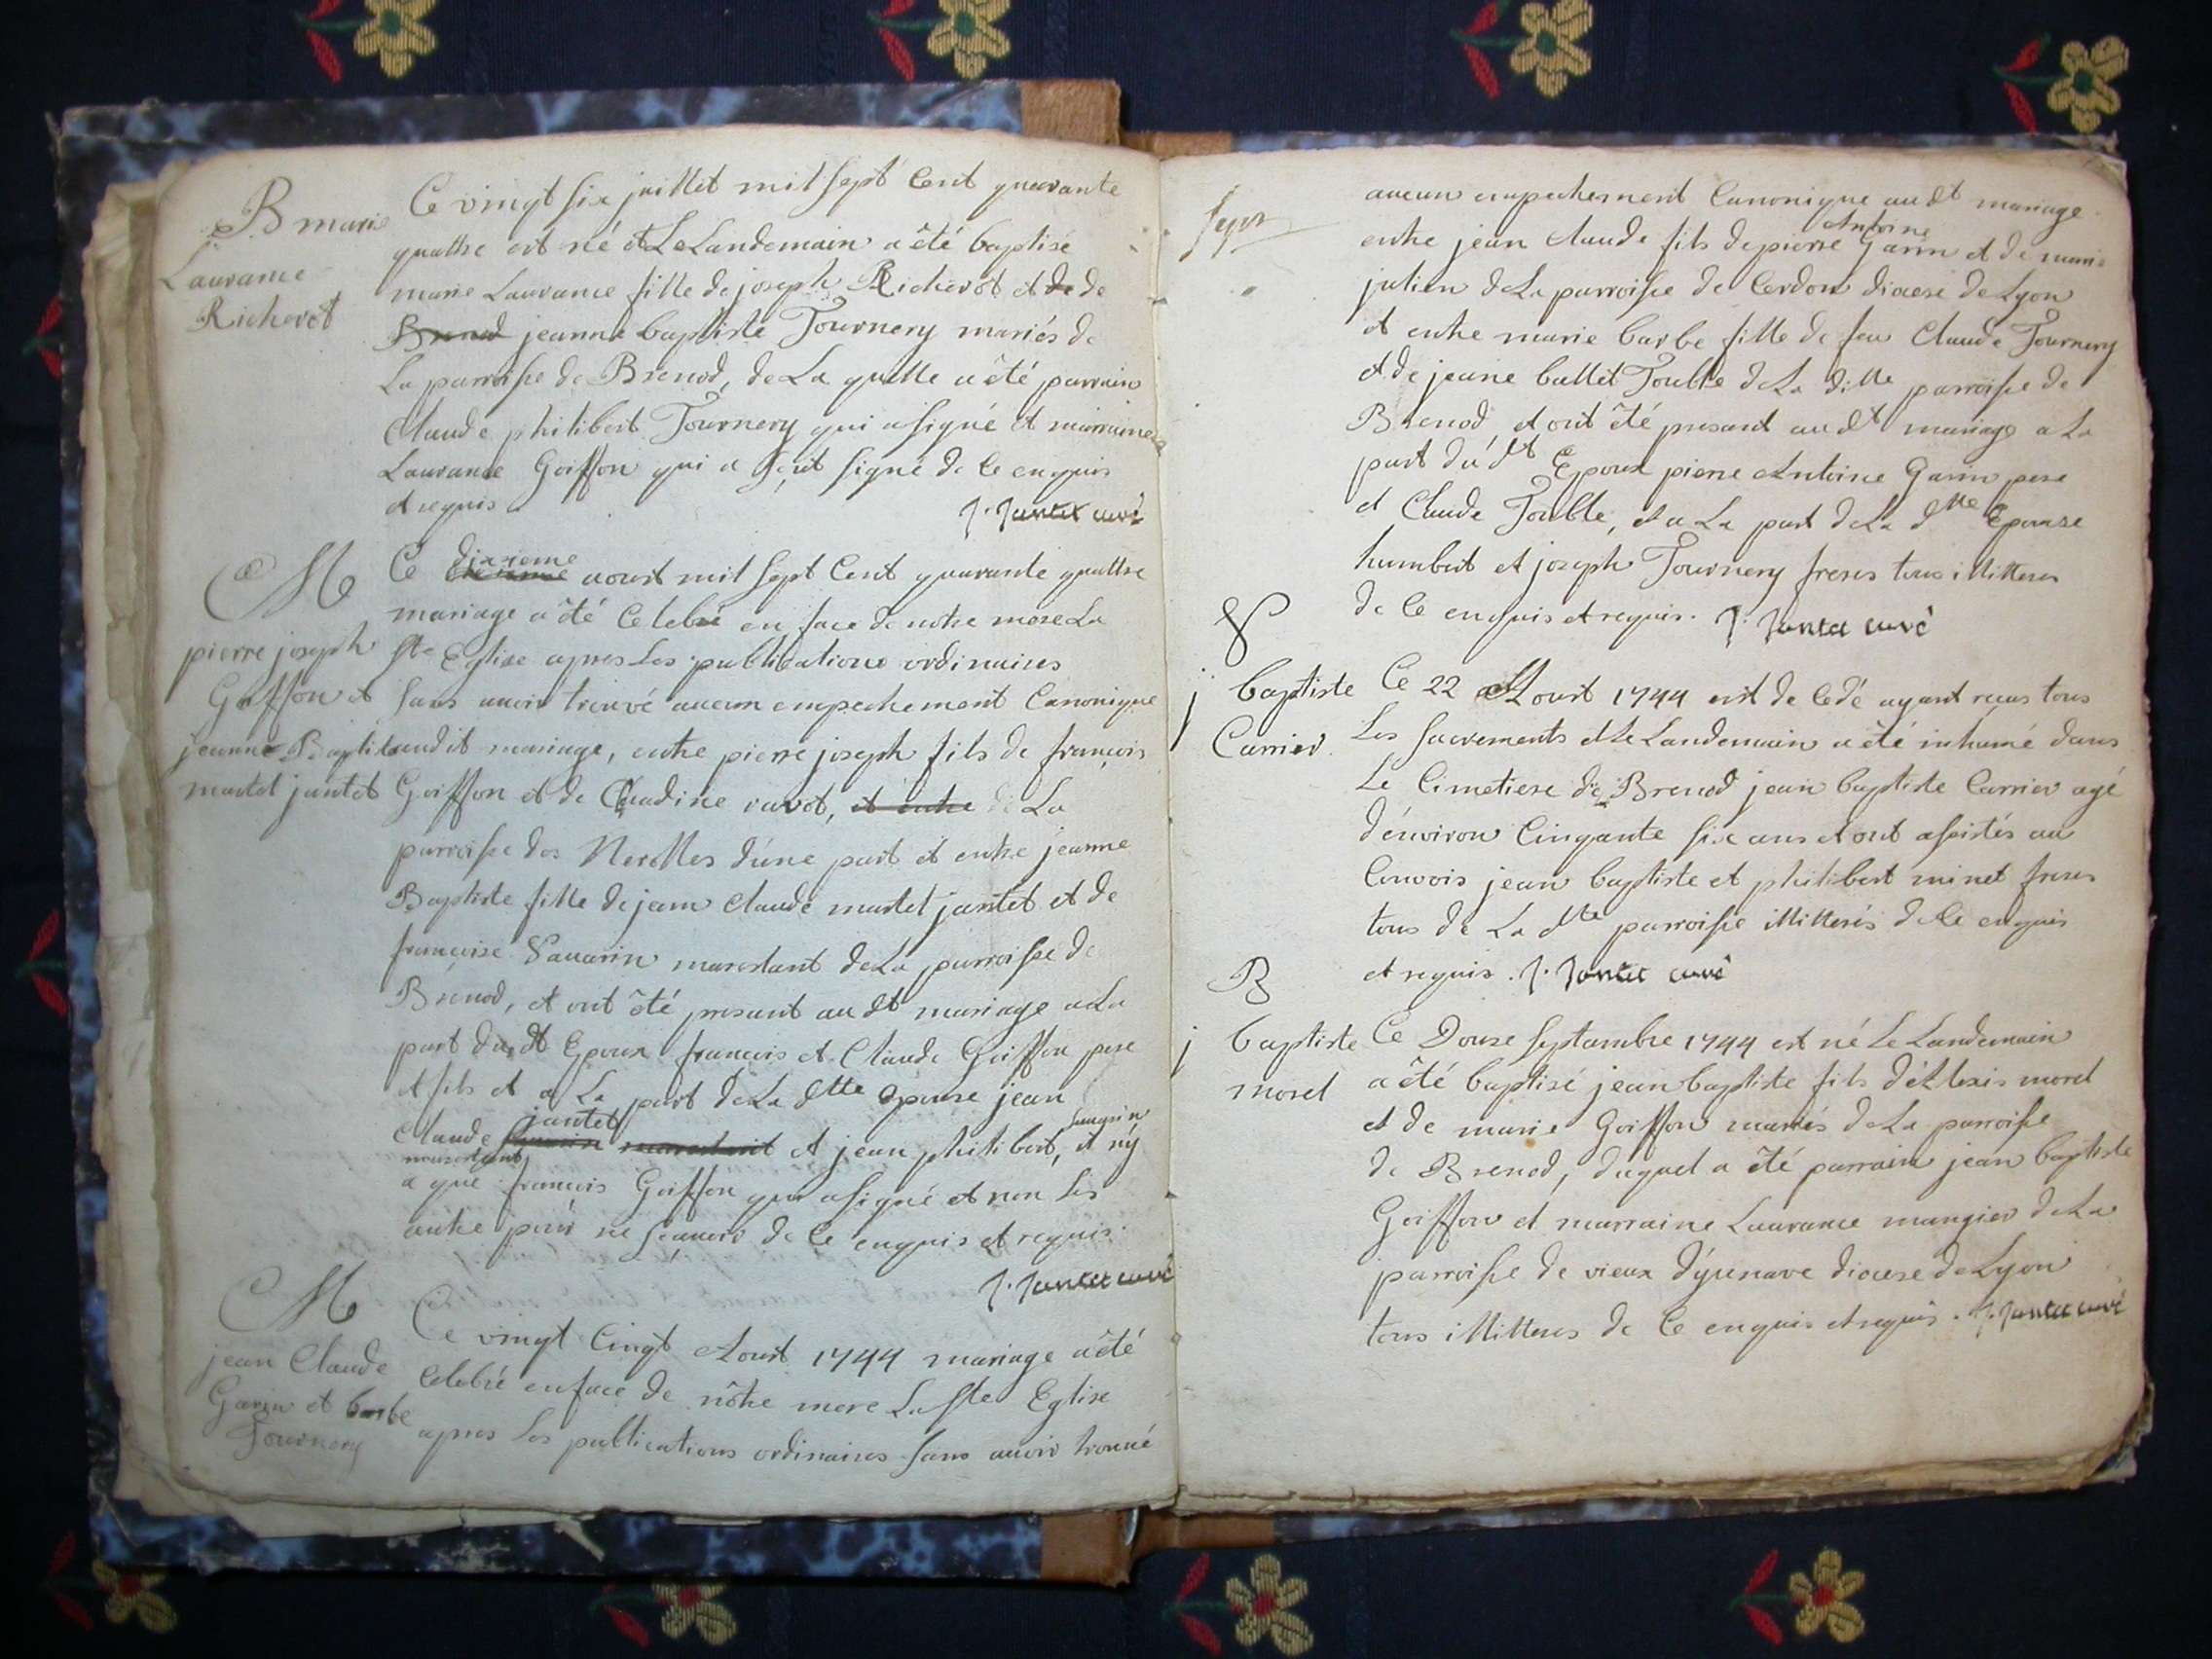 B marie
Laurance
Richerot
Ce vingt six juillet mil sept cent quarante
quattre est né et Le Landemain a été baptisé
marie Laurance fille de joseph Richerot et de de
Brenod jeanne baptiste Tournery mariés de
La parroisse de Brenod, de La quelle a été parrain
Claude philibert Tournery qui a signé et marraine
Laurance Goiffon qui a signé de ce enquis
et requis J. Jantet curé
M
pierre joseph
Goiffon et
jeanne Baptiste
martel jantet
Ce dixieme aoust mil sept cent quarante quattre
mariage a été celebré en face de notre mere La
Ste Eglise apres Les publications ordinaires
sans avoir trouvé aucun empechement Canonique
audit mariage, entre pierre joseph fils de françois
Goiffon et de Claudine ravot, et entre de La
parroisse des Nerolles d'une part et entre jeanne
Baptiste fille de jean Claude martel jantet et de
françoise Savarin marestant de La parroisse de
Brenod, et ont été presant au dt mariage a La
part du dt Epoux françois et Claude Goiffon pere
et fils et a La part de La dtte epouse jean
Claude jantet marestant et jean philibert, et n'y
marestant
a que françois Goiffon qui a signé et non Les
autre pour ne sçavoir de ce enquis et requis
J. Jantet curé
M
jean Claude
Garin et barbe
Tournery
Ce vingt Cinqt Aoust 1744 mariage a été
celebré en face de nôtre mere La Ste Eglise
apres Les publications ordinaires sans avoir trouvé
aucun empechement Canonique au dt mariage
Antoine
entre jean Claude fils de pierre Garin et de marie
julien de La parroisse de Cerdon diocese de Lyon
et entre marie barbe fille de feu Claude Tournery
et de jeane ballet Touble de La ditte parroisse de
Brenod et ont été presant au dt mariage a La
part du dt Epoux pierre Antoine Garin pere
et Claude Touble, et a La part de La dtte Epouse
humbert et joseph Tournery freres tous illitteres
de ce enquis et requis. J. Jantet curé
j baptiste
Carrier
Ce 22 Aoust 1744 est decedé ayant reçus tous
Les sacrements et Le Landemain a été inhumé dans
Le Cimetiere de Brenod jean baptiste Carrier agé
d'environ Cinqante six ans et ont assistés au
Convois jean baptiste et philibert minet freres
tous de La dtte parroisse illitterés de ce enquis
et requis. J. Jantet curé
B
j baptiste
morel
Ce Douse Septambre 1744 est né Le Landemain
a été baptisé jean baptiste fils d'Alexis morel
et de marie Goiffon mariés de La parroisse
de Brenod, duquel a été parrain jean baptiste
Goiffon et marraine Laurance mangier de La
parroisse de vieux d'yzenave diocese de Lyon
tous illitteres de ce enquis et requis. J. Jantet curé